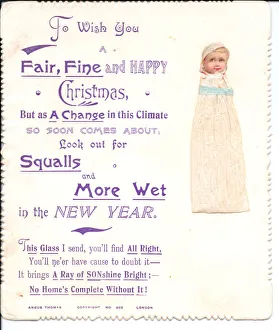 To Wish You
A
Fair, Fine and HAPPY
Christmas,
But as A Change in this Climate
SO SOON COMES ABOUT,
Look out for
Squalls
and
More Wet
in the NEW YEAR.
This Glass I send, you'll find All Right,
You'll ne'er have cause to doubt it—
It brings A Ray of SONshine Bright;—
No Home's Complete Without It!
ANGUS THOMAS COPYRIGHT NO. LONDON